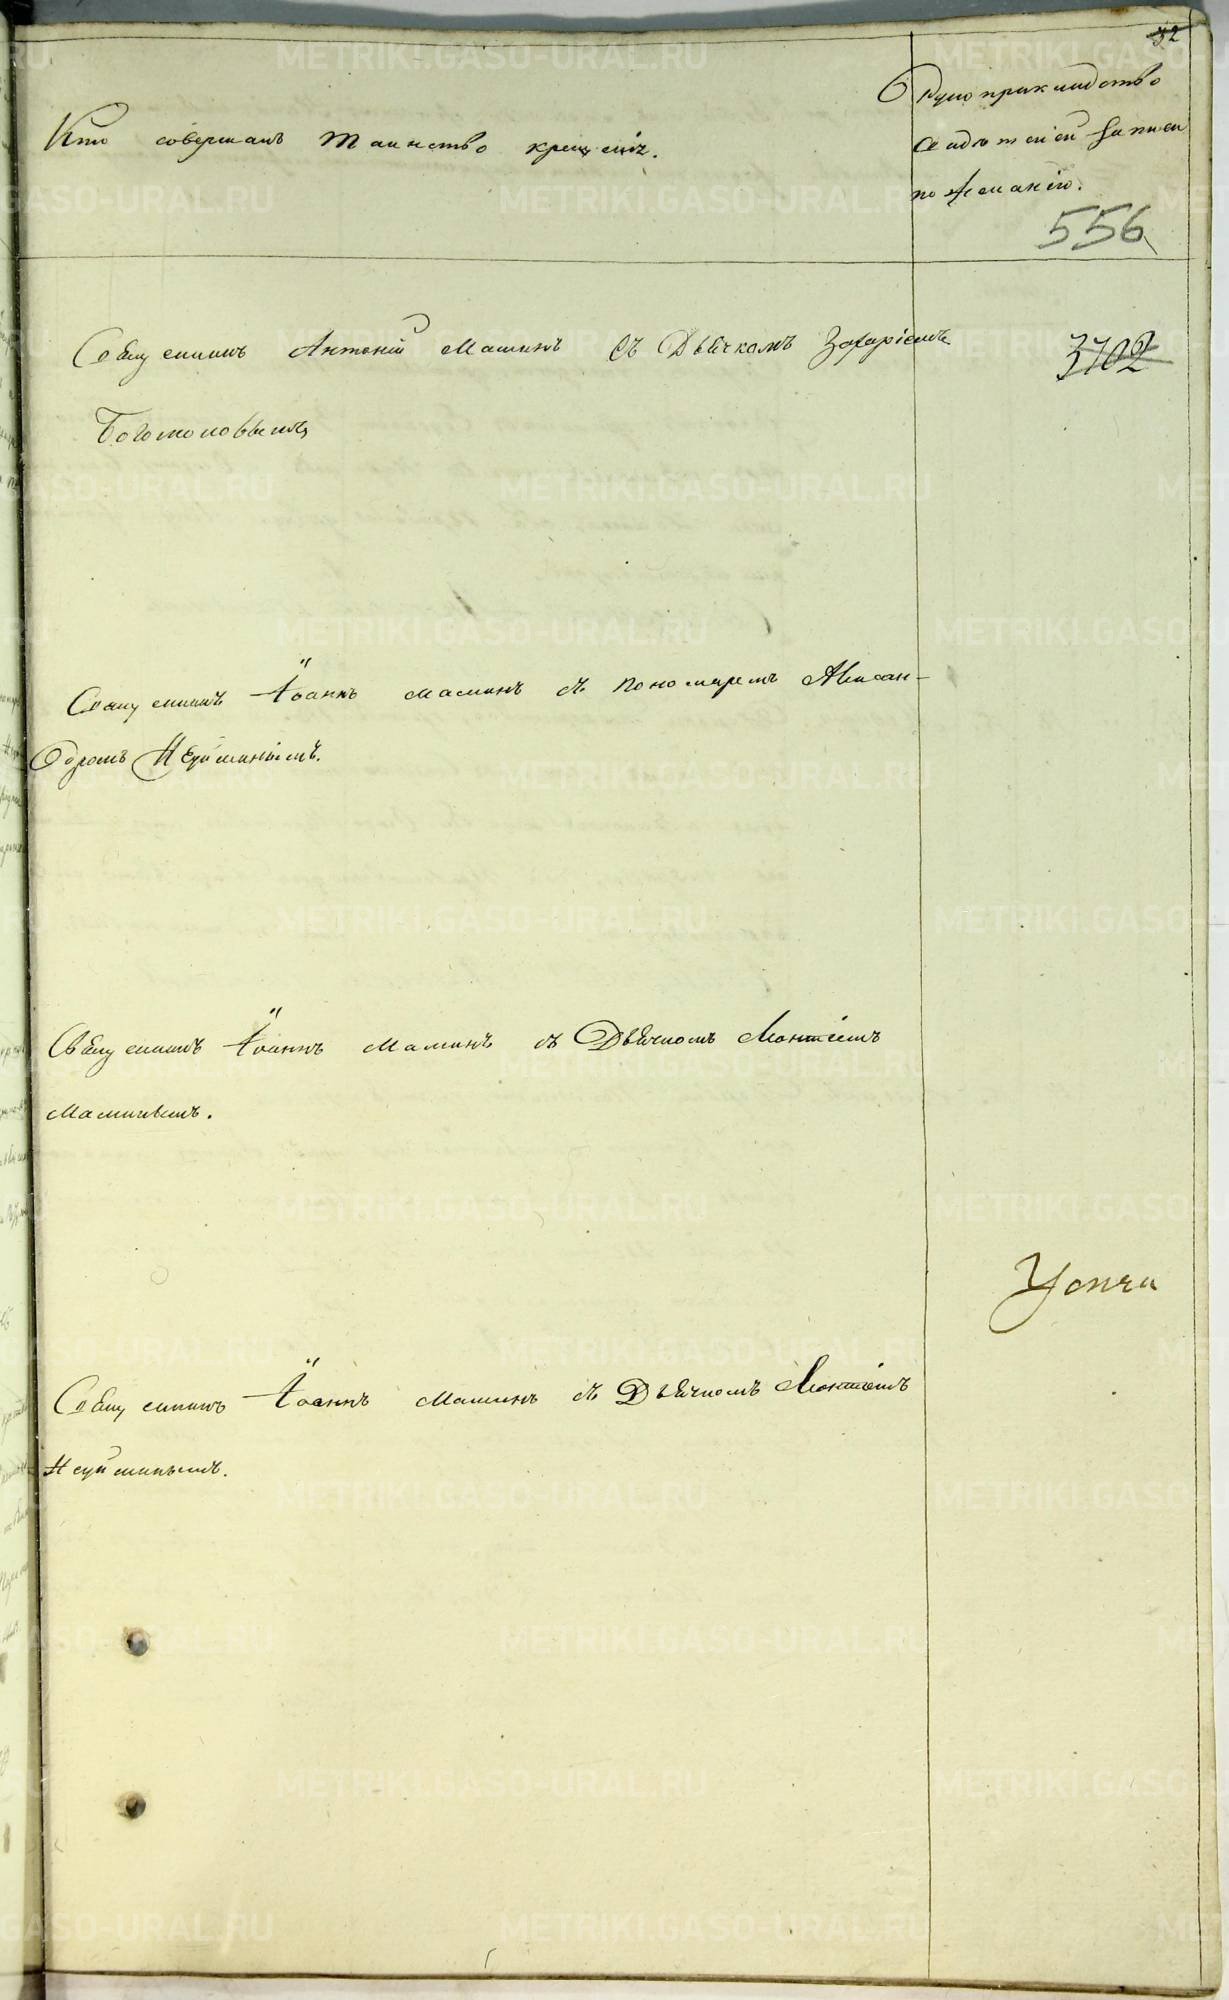 32
Кто совершалъ таинство крещенія.
Рукоприкладство
свидѣтелей записи
по желанію.
556
Священникъ Антоній Маминъ съ Дьячкомъ Захаріемъ
3702
Богомоловымъ
Священникъ Іоаннъ Маминъ съ пономаремъ Алексан-
дромъ Неуйминымъ.
Священникъ Іоаннъ Маминъ съ Дьячкомъ
Маминымъ.
Священникъ Іоаннъ Маминъ съ Дьячкомъ
Неуйминымъ.
METRIKI.GASO-URAL.RU